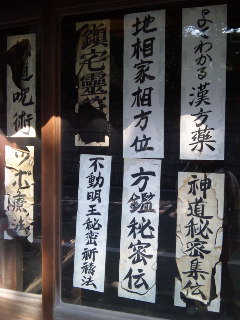 よくわかる漢方藥
地相家相方位
鎮宅靈符
道呪術
神道秘密集伝
方鑑秘密伝
不動明王秘密祈祷法
ツボ療法